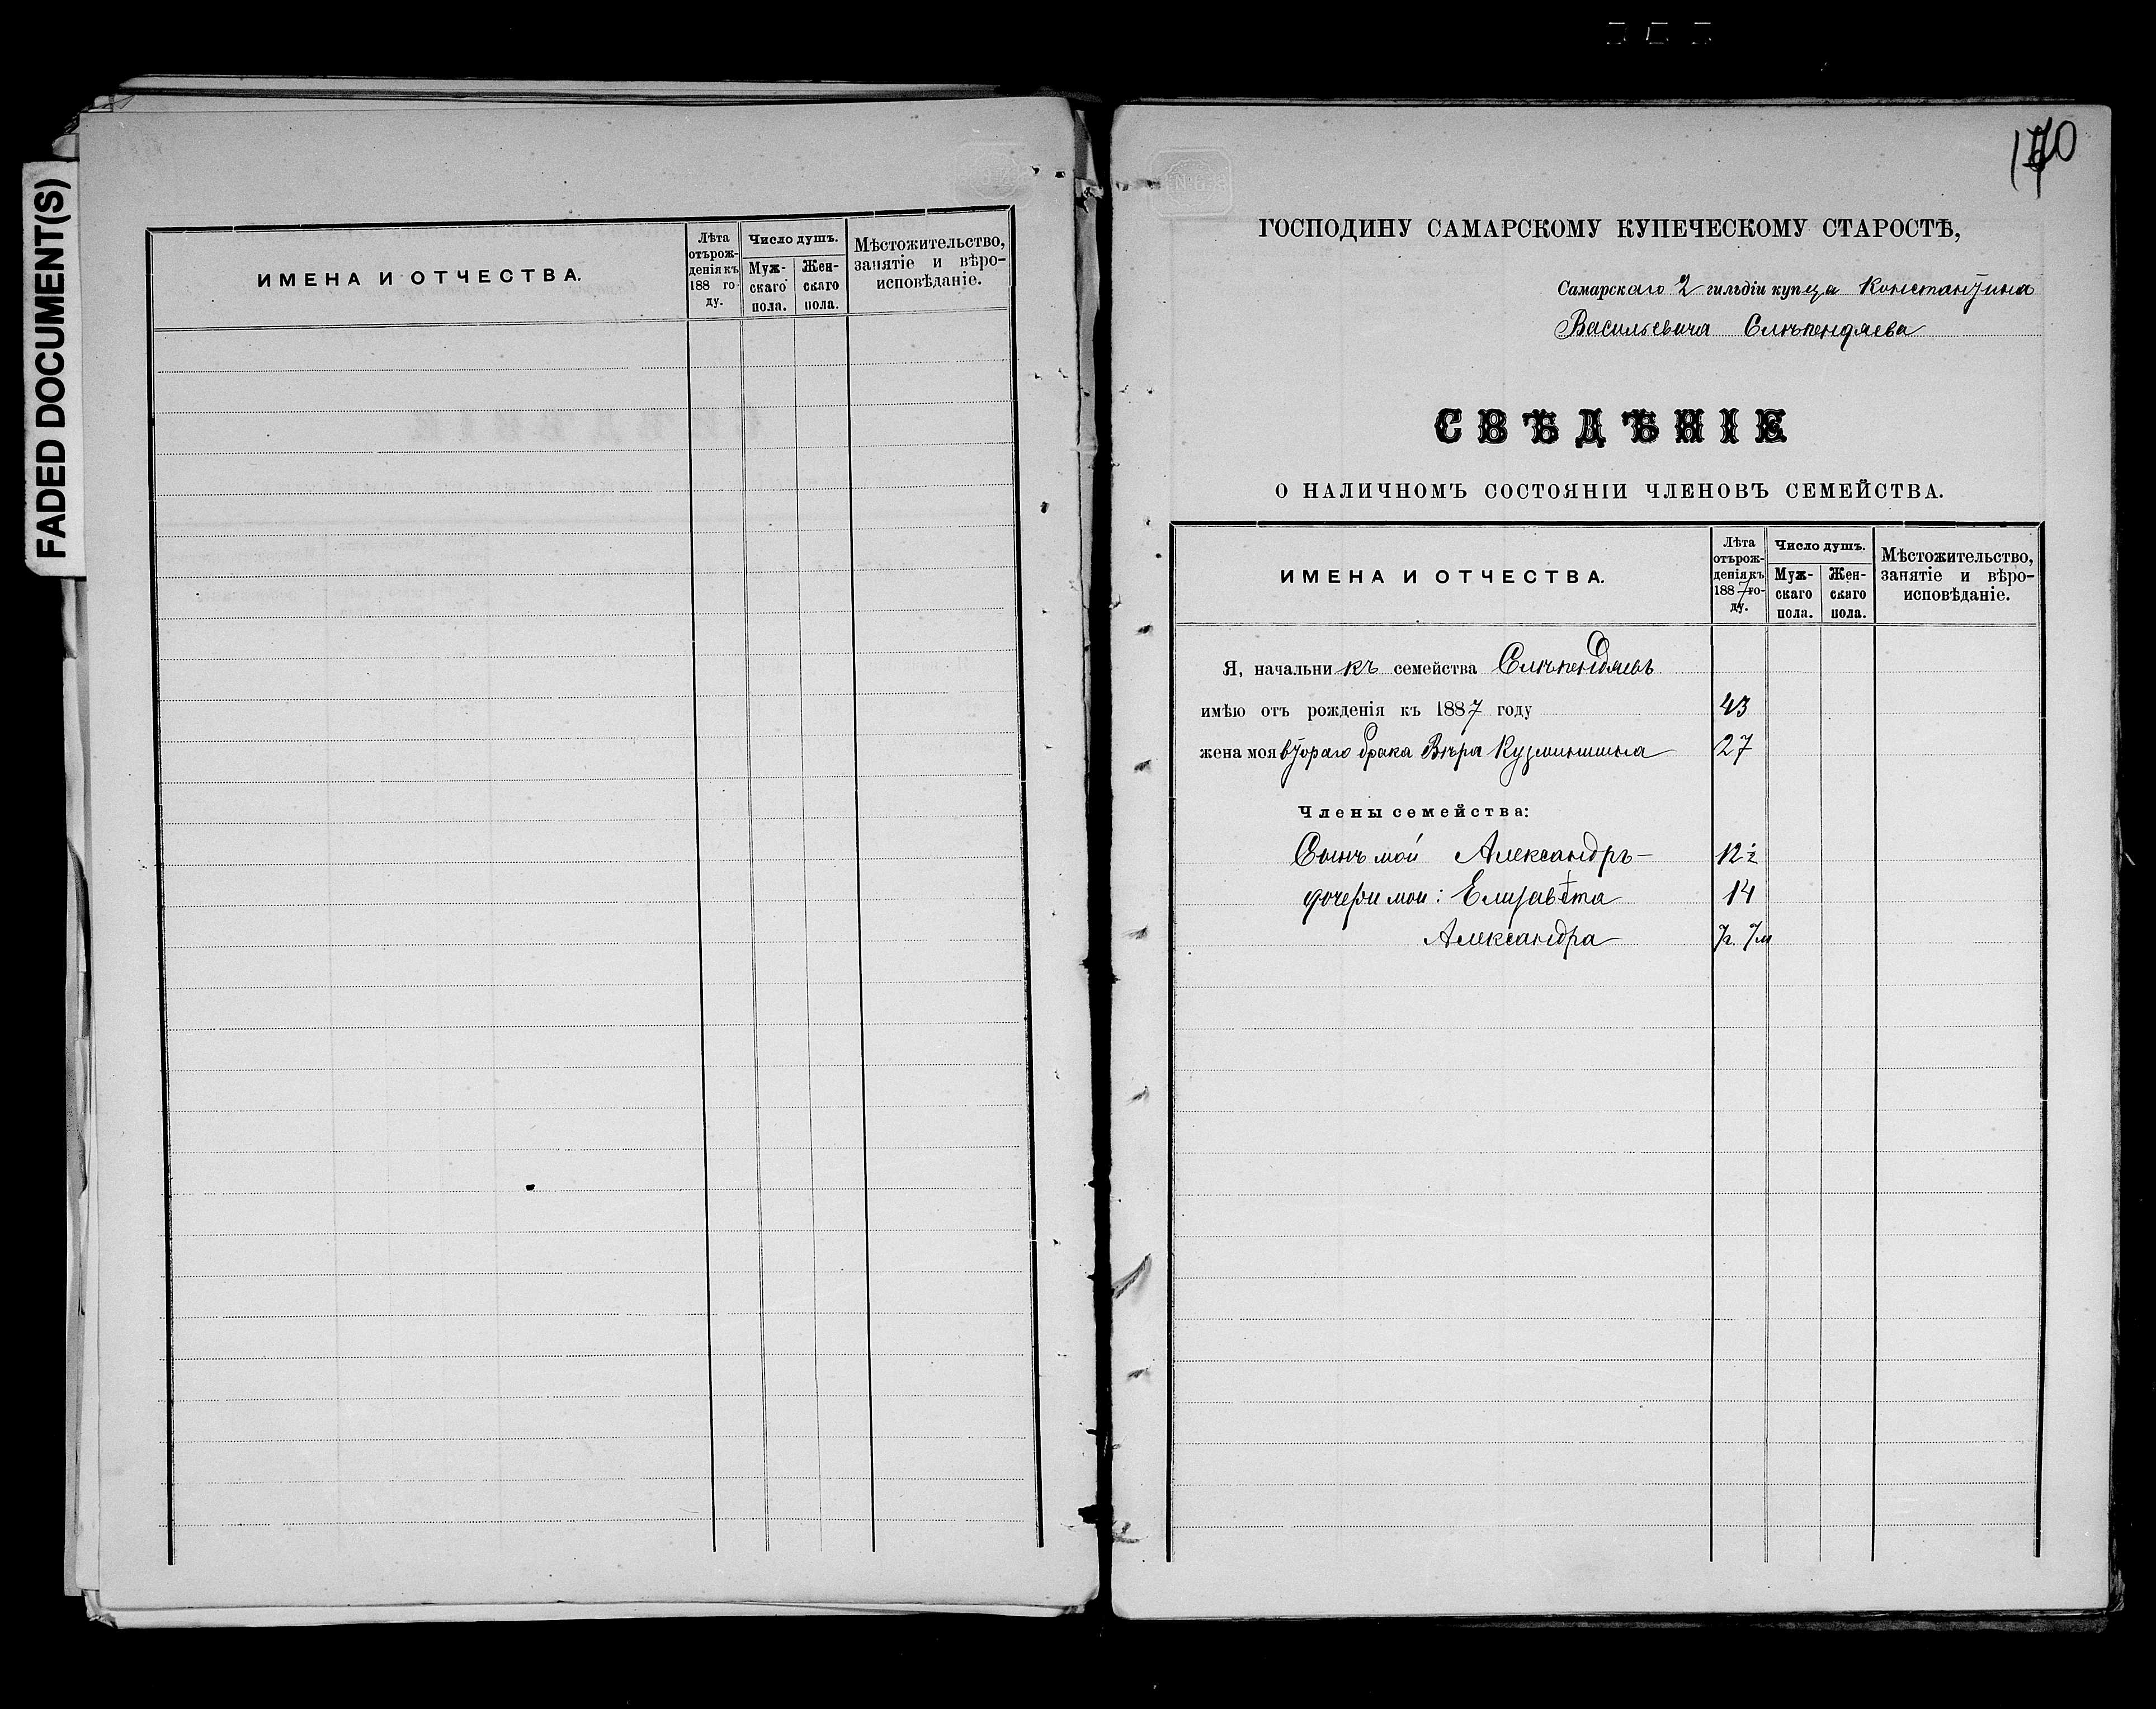 FADED DOCUMENT(S)
ИМЕНА И ОТЧЕСТВА.
Лѣта отърож-денія къ 188 го-ду.
Число душъ.
Муж-скаго пола.
Жен-скаго пола.
Мѣстожительство, занятіе и вѣро-исповѣданіе.
170
ГОСПОДИНУ САМАРСКОМУ КУПЕЧЕСКОМУ СТАРОСТѢ,
Самарскаго 2 гильдіи купца Константина
Васильевича Слѣпендяева
СВѢДѢНІЕ
О НАЛИЧНОМЪ СОСТОЯНІИ ЧЛЕНОВЪ СЕМЕЙСТВА.
ИМЕНА И ОТЧЕСТВА.
Лѣта отърож-денія къ 1887 го-ду.
Число душъ.
Муж-скаго пола.
Жен-скаго пола.
Мѣстожительство, занятіе и вѣро-исповѣданіе.
Я, начальникъ семейства Слѣпендяевъ
имѣю отъ рожденія къ 1887 году 43
жена моя втораго брака Вѣра 27
Члены семейства:
Сынъ мой Александръ 12½
дочери мои: Елизавета 14
Александра 7м